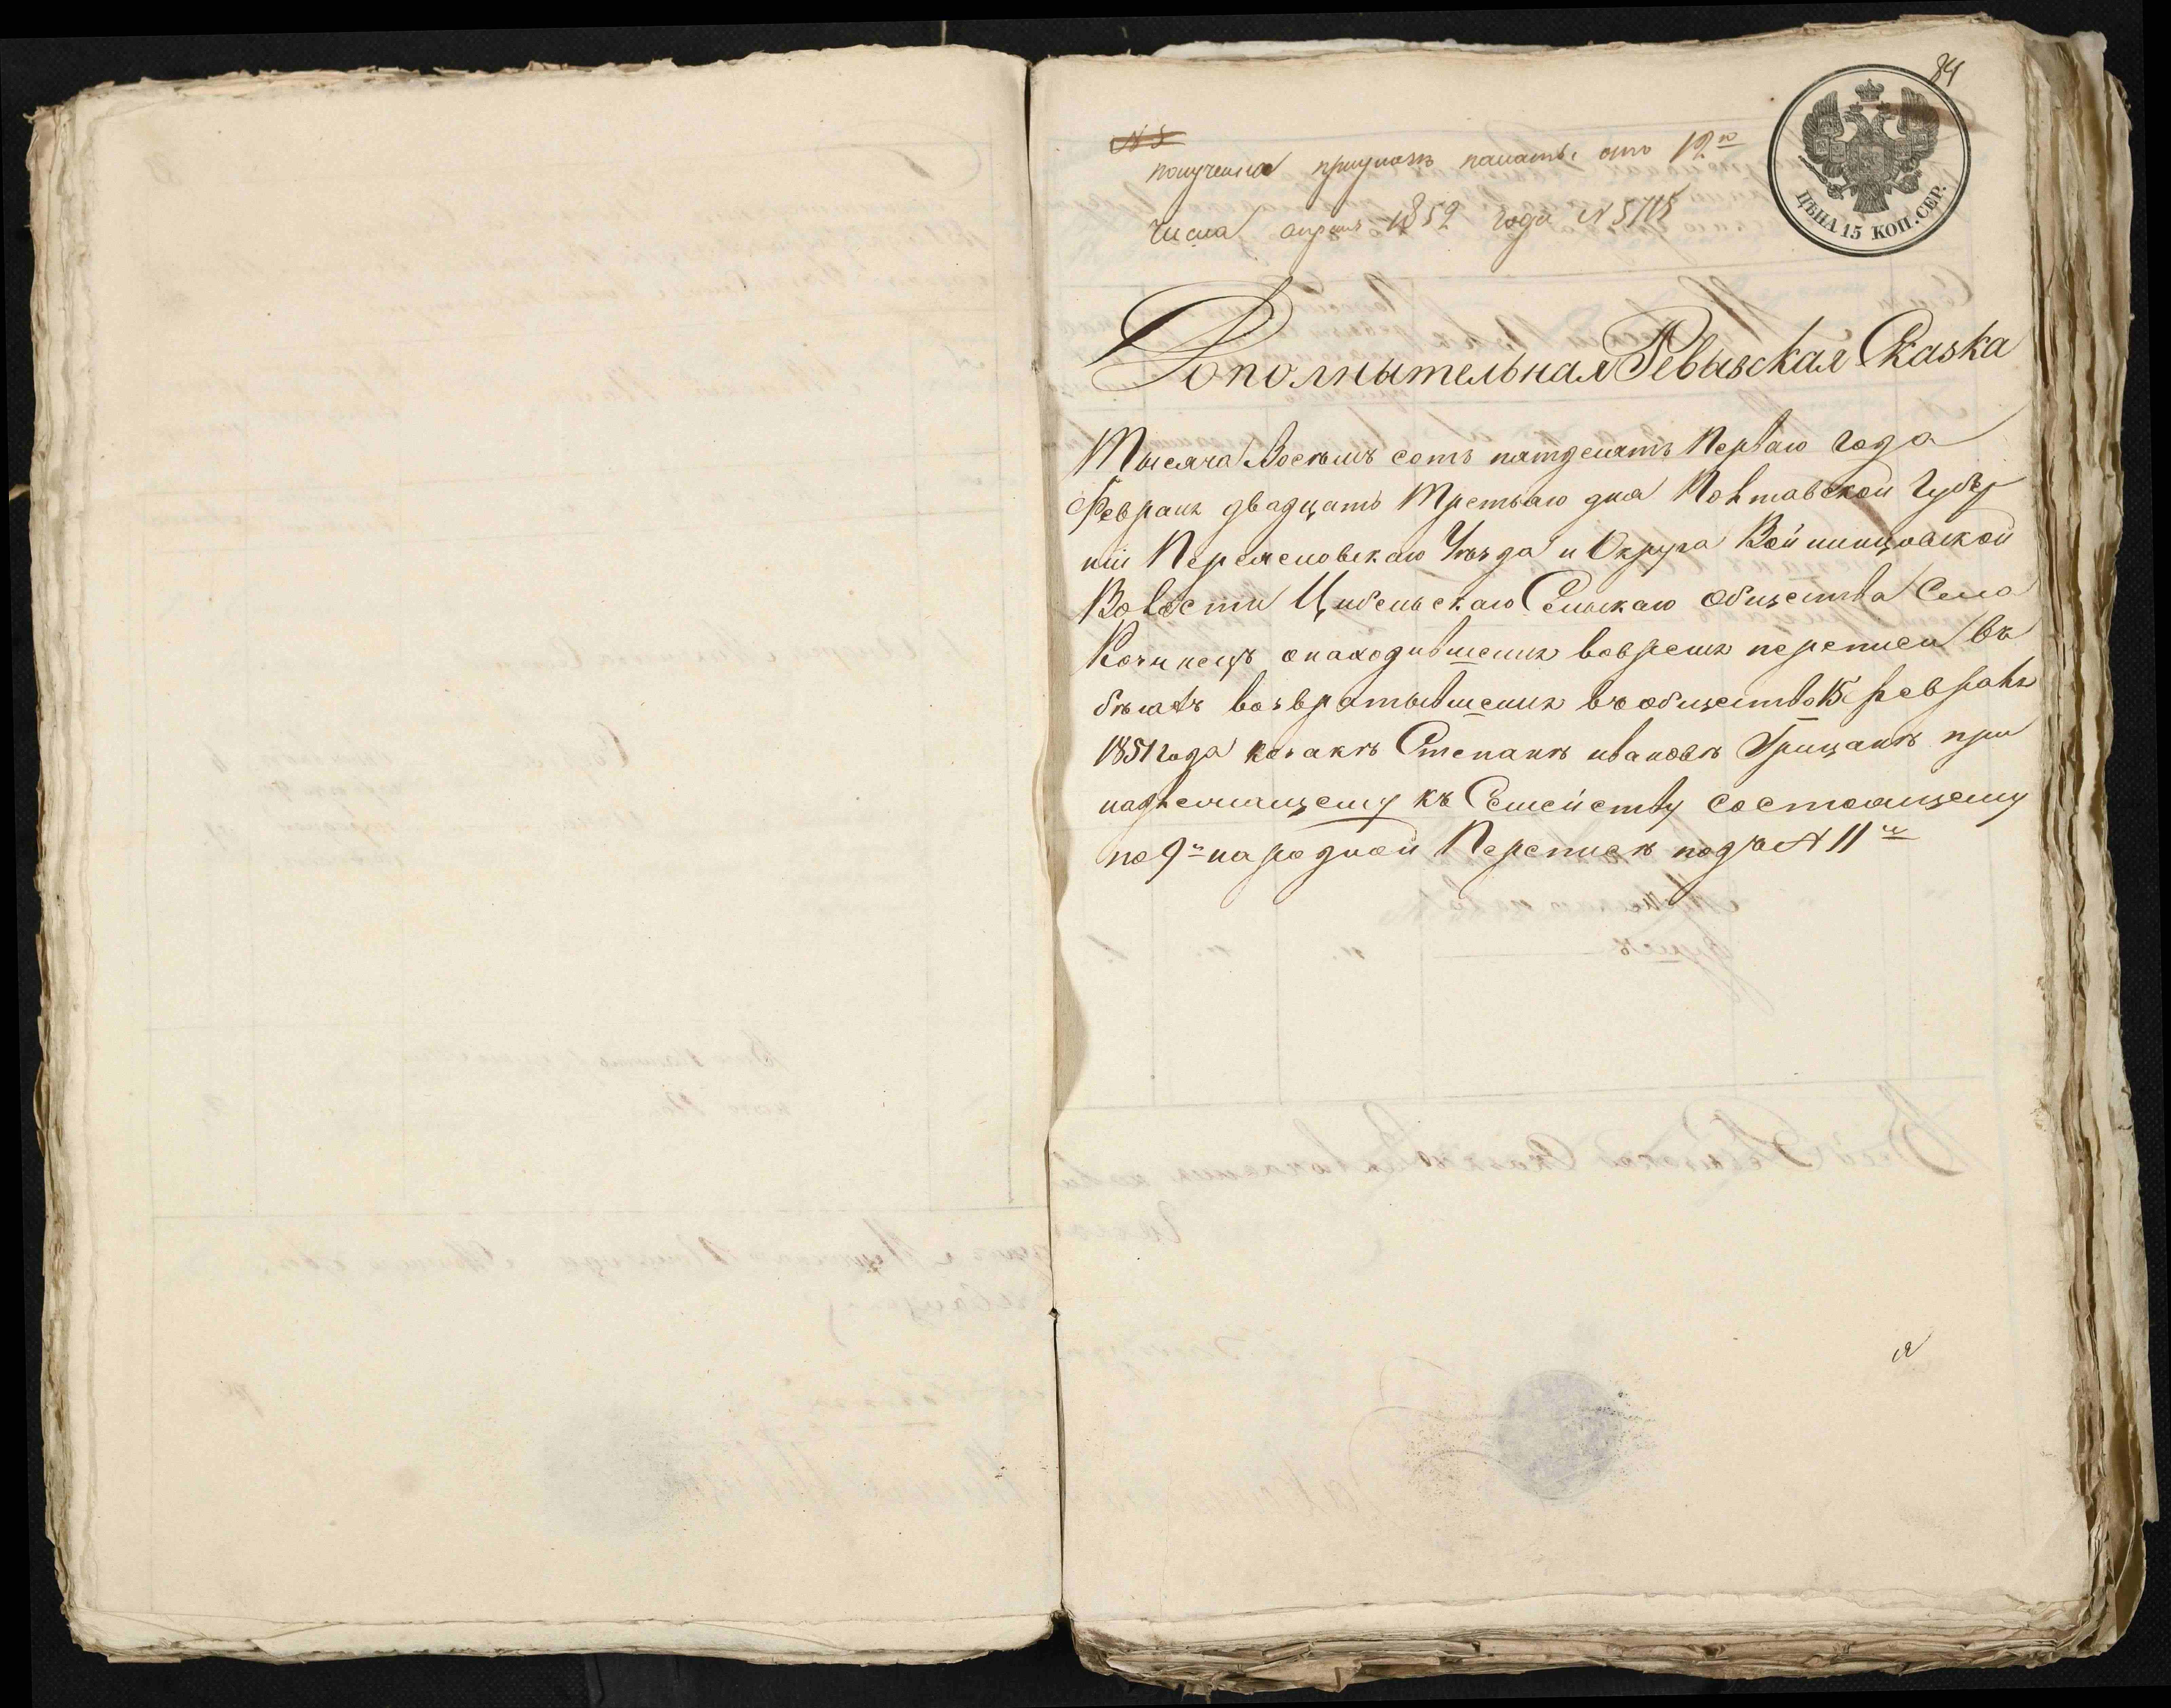 84
ЦѢНА 15 КОП. СЕР.
N 5
получена палаты отъ 12го
числа 1852 года N 5715
Дополнытельная Ревызская Сказка
Тысяча восемъ сотъ пятдесятъ Перваго года
Февраля двадцать Третьаго дня Полтавской Губер
ніи Переяславскаго Уезда и Округа Войтовской
Волости Цибельскаго Сельскаго общества Села
онаходившемся вовремя переписи въ
бѣгахъ возвратывшемся въ общество 15 февраля
1851 года козакѣ Степанѣ ивановѣ Грицаиѣ при
надлежащему къ Семейству состоящему
по 9й народной Переписѣ подъ N 11м